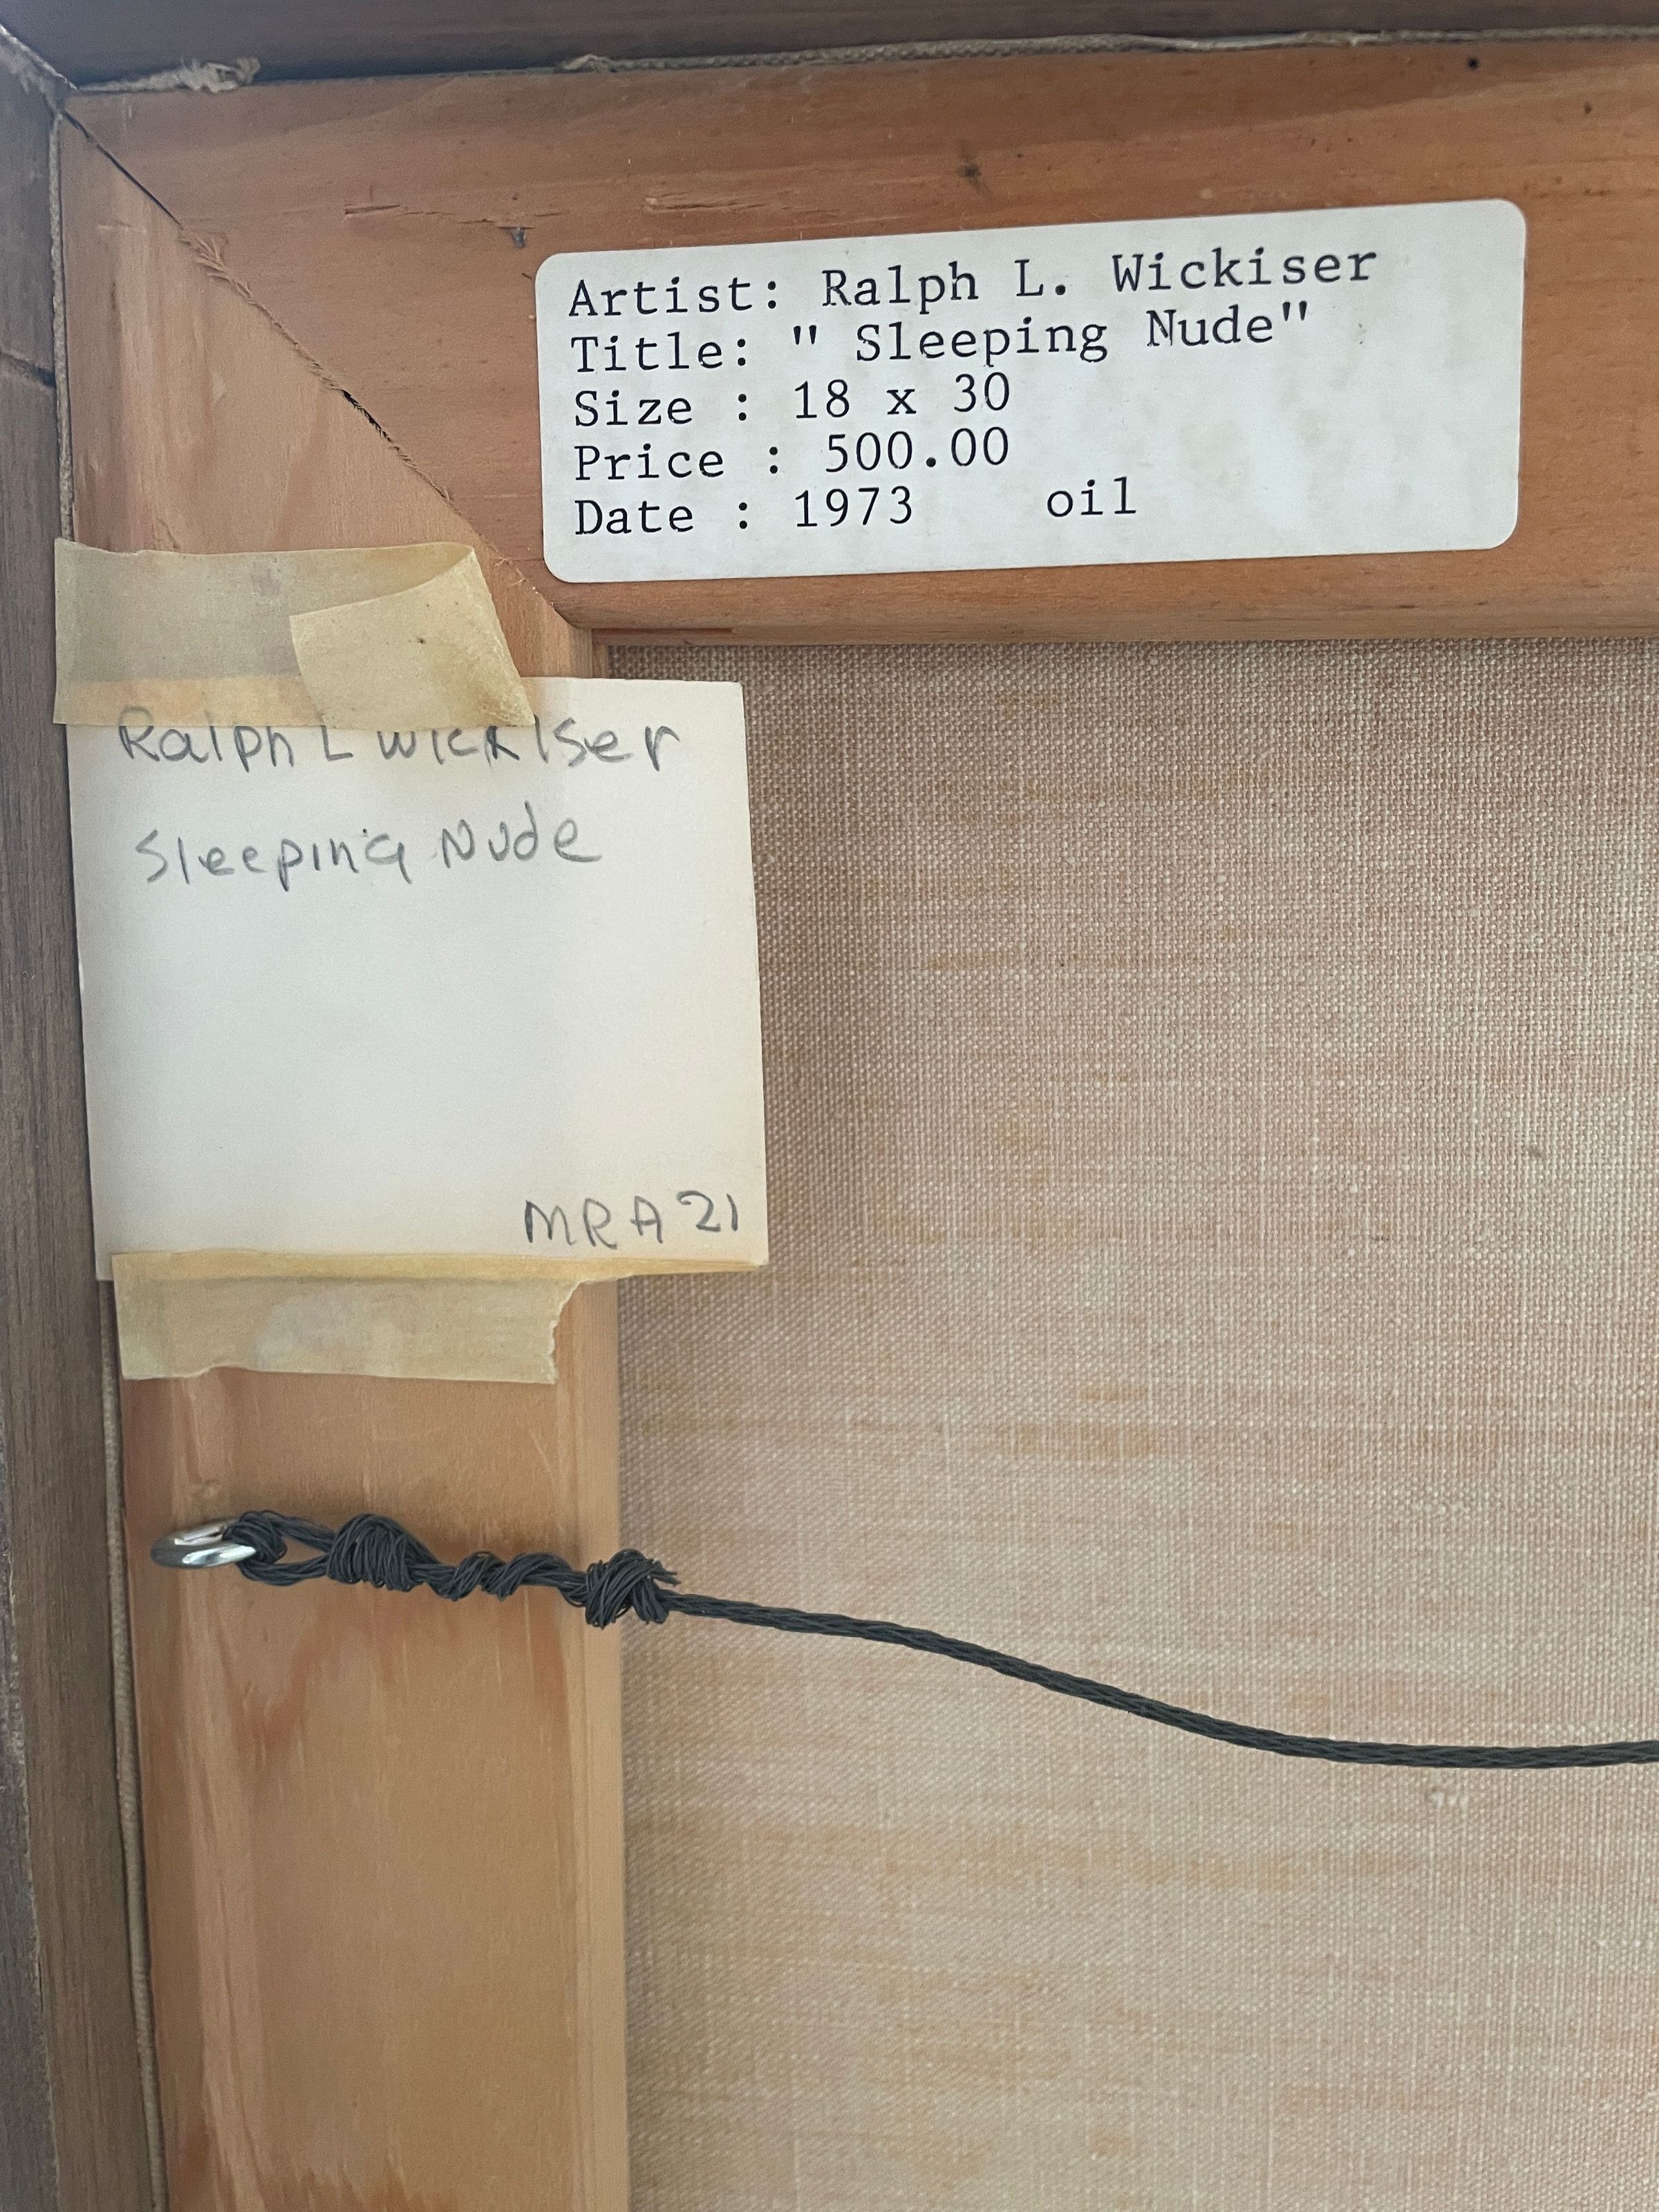 Artist: Ralph L. Wickiser
Title: " Sleeping Nude"
Size : 18 x 30
Price : 500.00
Date : 1973 oil
Ralph L Wickiser
Sleeping Nude
MRA 21